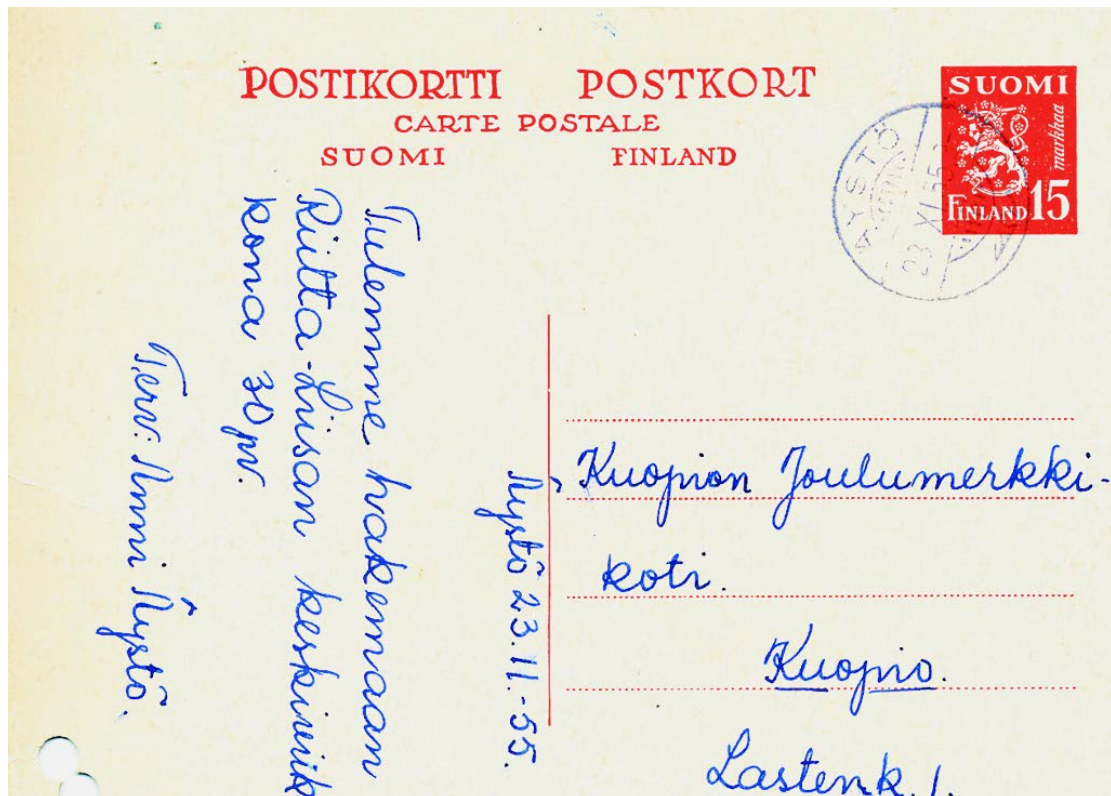 POSTIKORTTI POSTKORT
CARTE POSTALE
SUOMI FINLAND
SUOMI
markkaa
FINLAND 15
ÄYSTÖ
23 XI 55
Äystö 23.11.-55.
Tulemme hakemaan
Riitta-Liisan keskiviik
kona 30 pv.
Terv. Anni Äystö.
Kuopion Joulumerkki-
koti.
Kuopio.
Lastenk. 1.